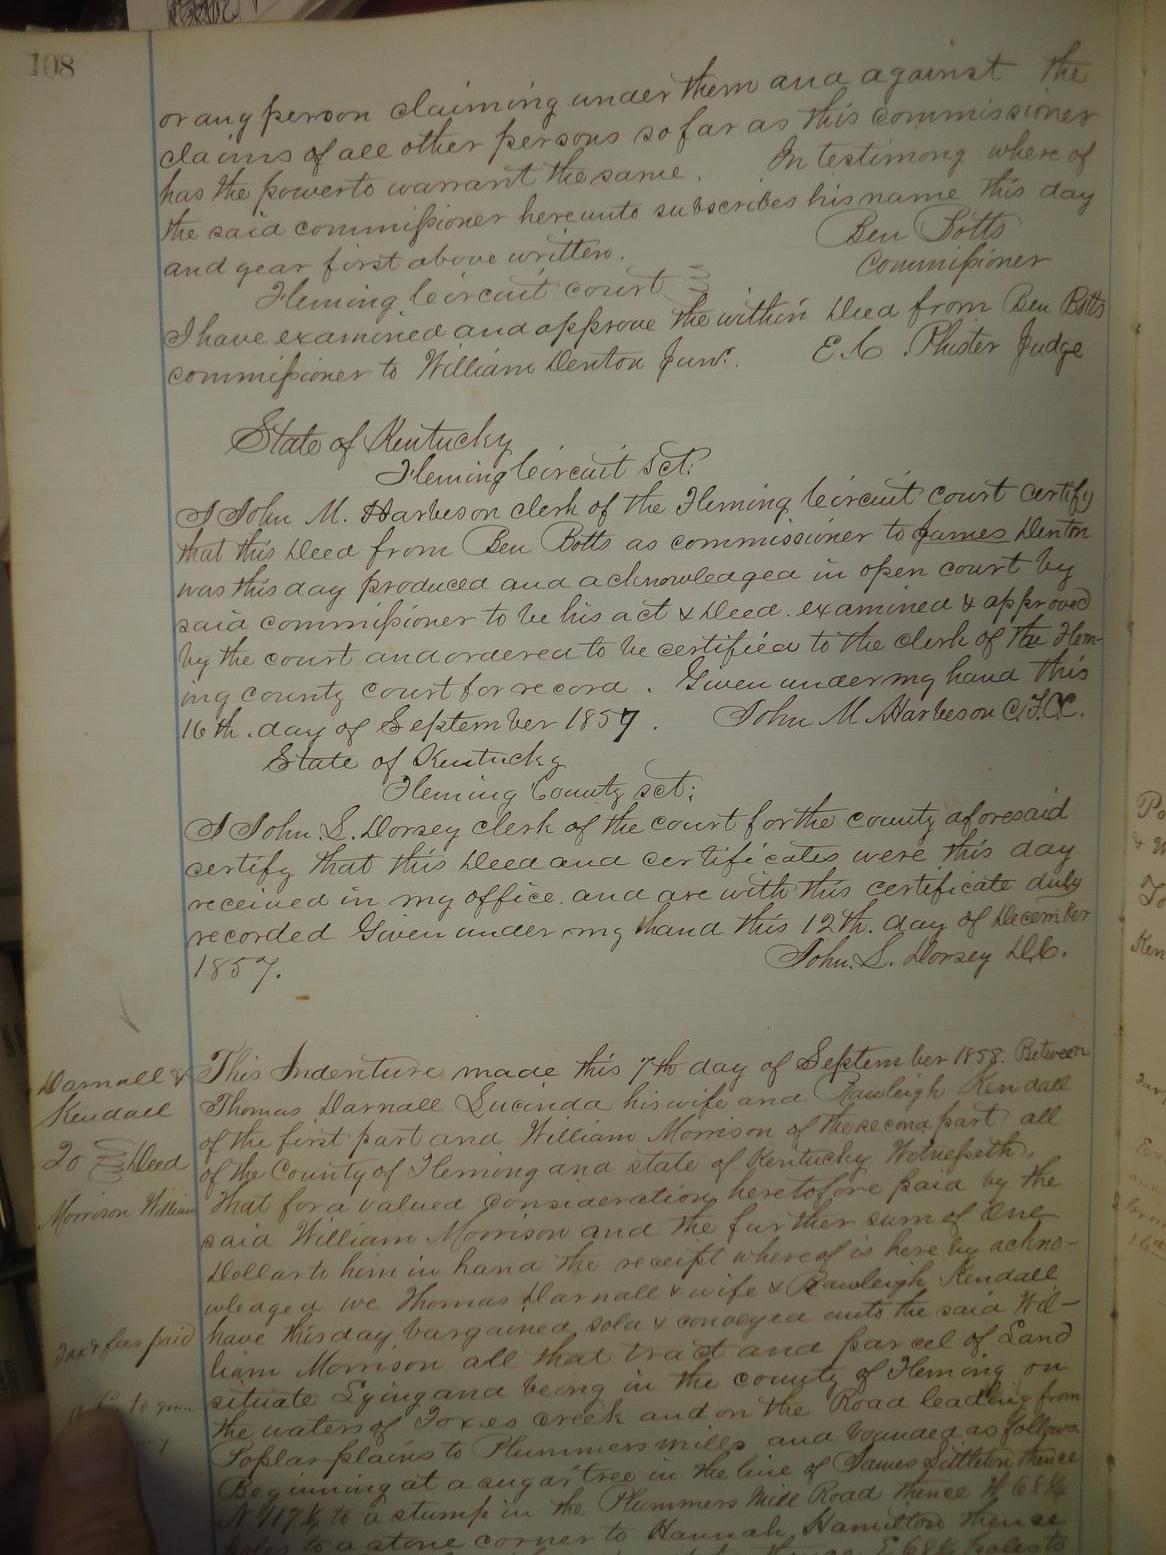 108
or any person claiming under them and against the
claims of all other persons so far as this commissioner
has the power to warrant the same. In testimony where of
the said commissioner here unto subscribes his name this day
and year first above written. Ben Botts
Commissioner
Fleming Circuit court
I have examined and approve the within Deed from Ben Botts
commissioner to William Denton Junr. E. C. Phister Judge
State of Kentucky
Fleming Circuit Sct:
I John M. Harbeson clerk of the Fleming Circuit court certify
that this Deed from Ben Botts as commissioner to James Denton
was this day produced and acknowledged in open court by
said commissioner to be his act & Deed examined & approved
by the court and ordered to be certified to the clerk of the Flem-
ing county court for record. Given under my hand this
16th. day of September 1857. John M Harbeson C.F.C.C.
State of Kentucky
Fleming County sct:
I John S. Dorsey clerk of the court for the county aforesaid
certify that this Deed and certificates were this day
received in my office. and are with this certificate duly
recorded Given under my hand this 12th. day of December
1857. John. S. Dorsey D.C.
Darnall &
Kendall
To Deed
Morrison William
This Indenture made this 7th day of September 1858. Between
Thomas Darnall Lucinda his wife and Rawleigh Kendall
of the first part and William Morrison of the second part all
of the County of Fleming and state of Kentucky Witnesseth.
That for a valued consideration heretofore paid by the
said William Morrison and the further sum of One
Dollar to him in hand the receipt whereof is here by ackno-
wledged we Thomas Darnall & wife & Rawleigh Kendall
have this day bargained, sold & conveyed unto the said Wil-
liam Morrison all that tract and parcel of Land
situate Lying and being in the county of Fleming on
the waters of Foxes creek and on the Road leading from
Poplar plains to Plummers mills and bounded as follows.
Beginning at a sugar tree in the line of James Littleton thence
N 117 1/2 to a stump in the Plummers Mill Road thence N 68 1/2
poles to a stone corner to Hannah Hamilton thence
E 68 1/2 poles to
Tax & fees paid